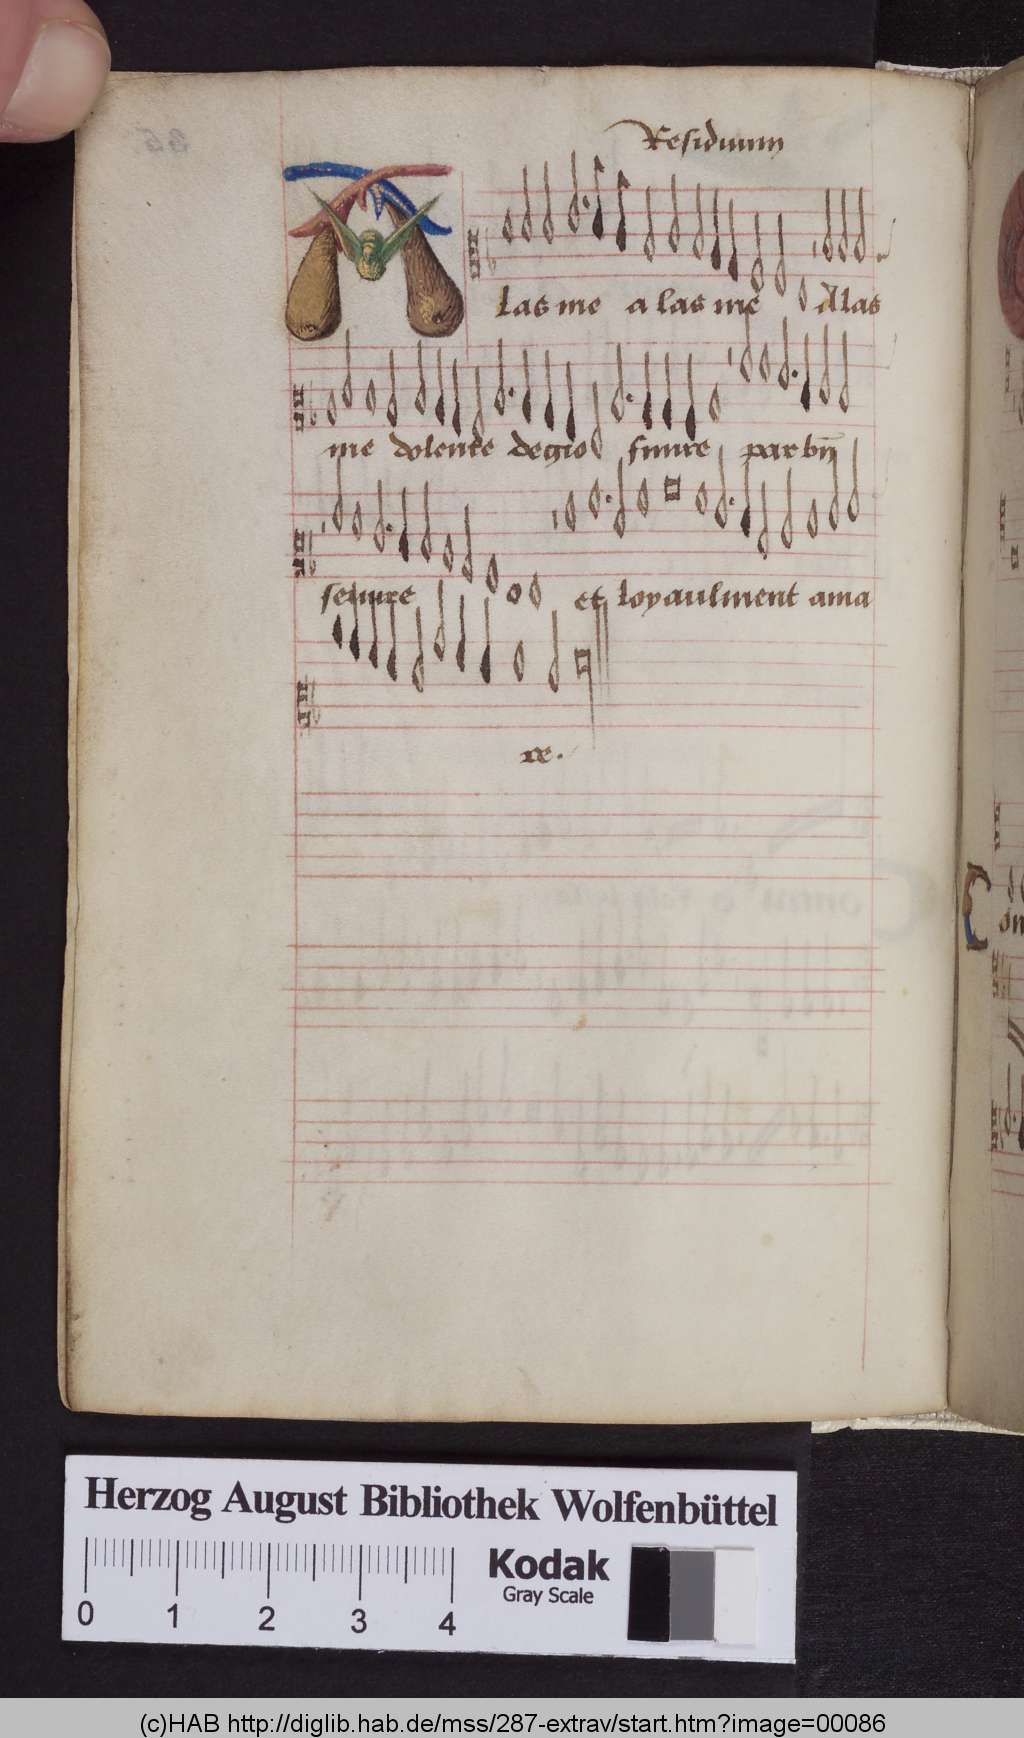 Residuum
las me a las me Alas
me dolente de gio fuure par bn̄
seruire et loyaulment ama
re.
Herzog August Bibliothek Wolfenbüttel
0 1 2 3 4
Kodak
Gray Scale
(c)HAB http://diglib.hab.de/mss/287-extrav/start.htm?image=00086